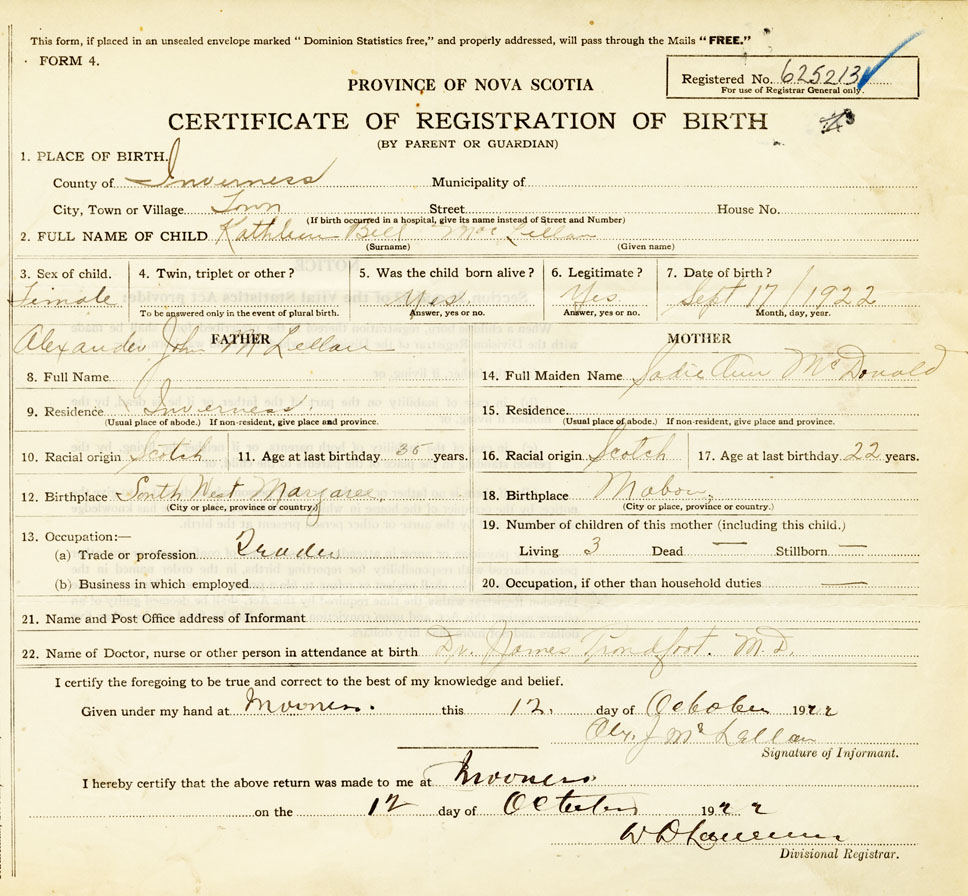 This form, if placed in an unsealed envelope marked “ Dominion Statistics free,” and properly addressed, will pass through the Mails “ FREE.”
FORM 4.
Registered No. 625213
For use of Registrar General only.
PROVINCE OF NOVA SCOTIA
CERTIFICATE OF REGISTRATION OF BIRTH
(BY PARENT OR GUARDIAN)
1. PLACE OF BIRTH.
County of Inverness Municipality of
City, Town or Village Town Street House No.
(If birth occurred in a hospital, give its name instead of Street and Number)
2. FULL NAME OF CHILD Kathleen Bell MacLellan
(Surname) (Given name)
3. Sex of child. 4. Twin, triplet or other? 5. Was the child born alive? 6. Legitimate? 7. Date of birth?
Female Yes. Yes Sept 17/1922
To be answered only in the event of plural birth. Answer, yes or no. Answer, yes or no. Month, day, year.
FATHER MOTHER
Alexander John McLellan
8. Full Name 14. Full Maiden Name Sadie Ann McDonald
9. Residence Inverness. 15. Residence.
(Usual place of abode.) If non-resident, give place and province. (Usual place of abode.) If non-resident, give place and province.
10. Racial origin Scotch 11. Age at last birthday 35 years. 16. Racial origin Scotch 17. Age at last birthday 22 years.
12. Birthplace South West Margaree, 18. Birthplace Mabou,
(City or place, province or country.) (City or place, province or country.)
13. Occupation:— 19. Number of children of this mother (including this child.)
(a) Trade or profession Living 3 Dead — Stillborn —
(b) Business in which employed 20. Occupation, if other than household duties —
21. Name and Post Office address of Informant
22. Name of Doctor, nurse or other person in attendance at birth Dr. James Proudfoot. M.D.
I certify the foregoing to be true and correct to the best of my knowledge and belief.
Given under my hand at this 12, day of October 1922
Alex. J McLellan
Signature of Informant.
I hereby certify that the above return was made to me at
on the 12 day of October 1922
Divisional Registrar.